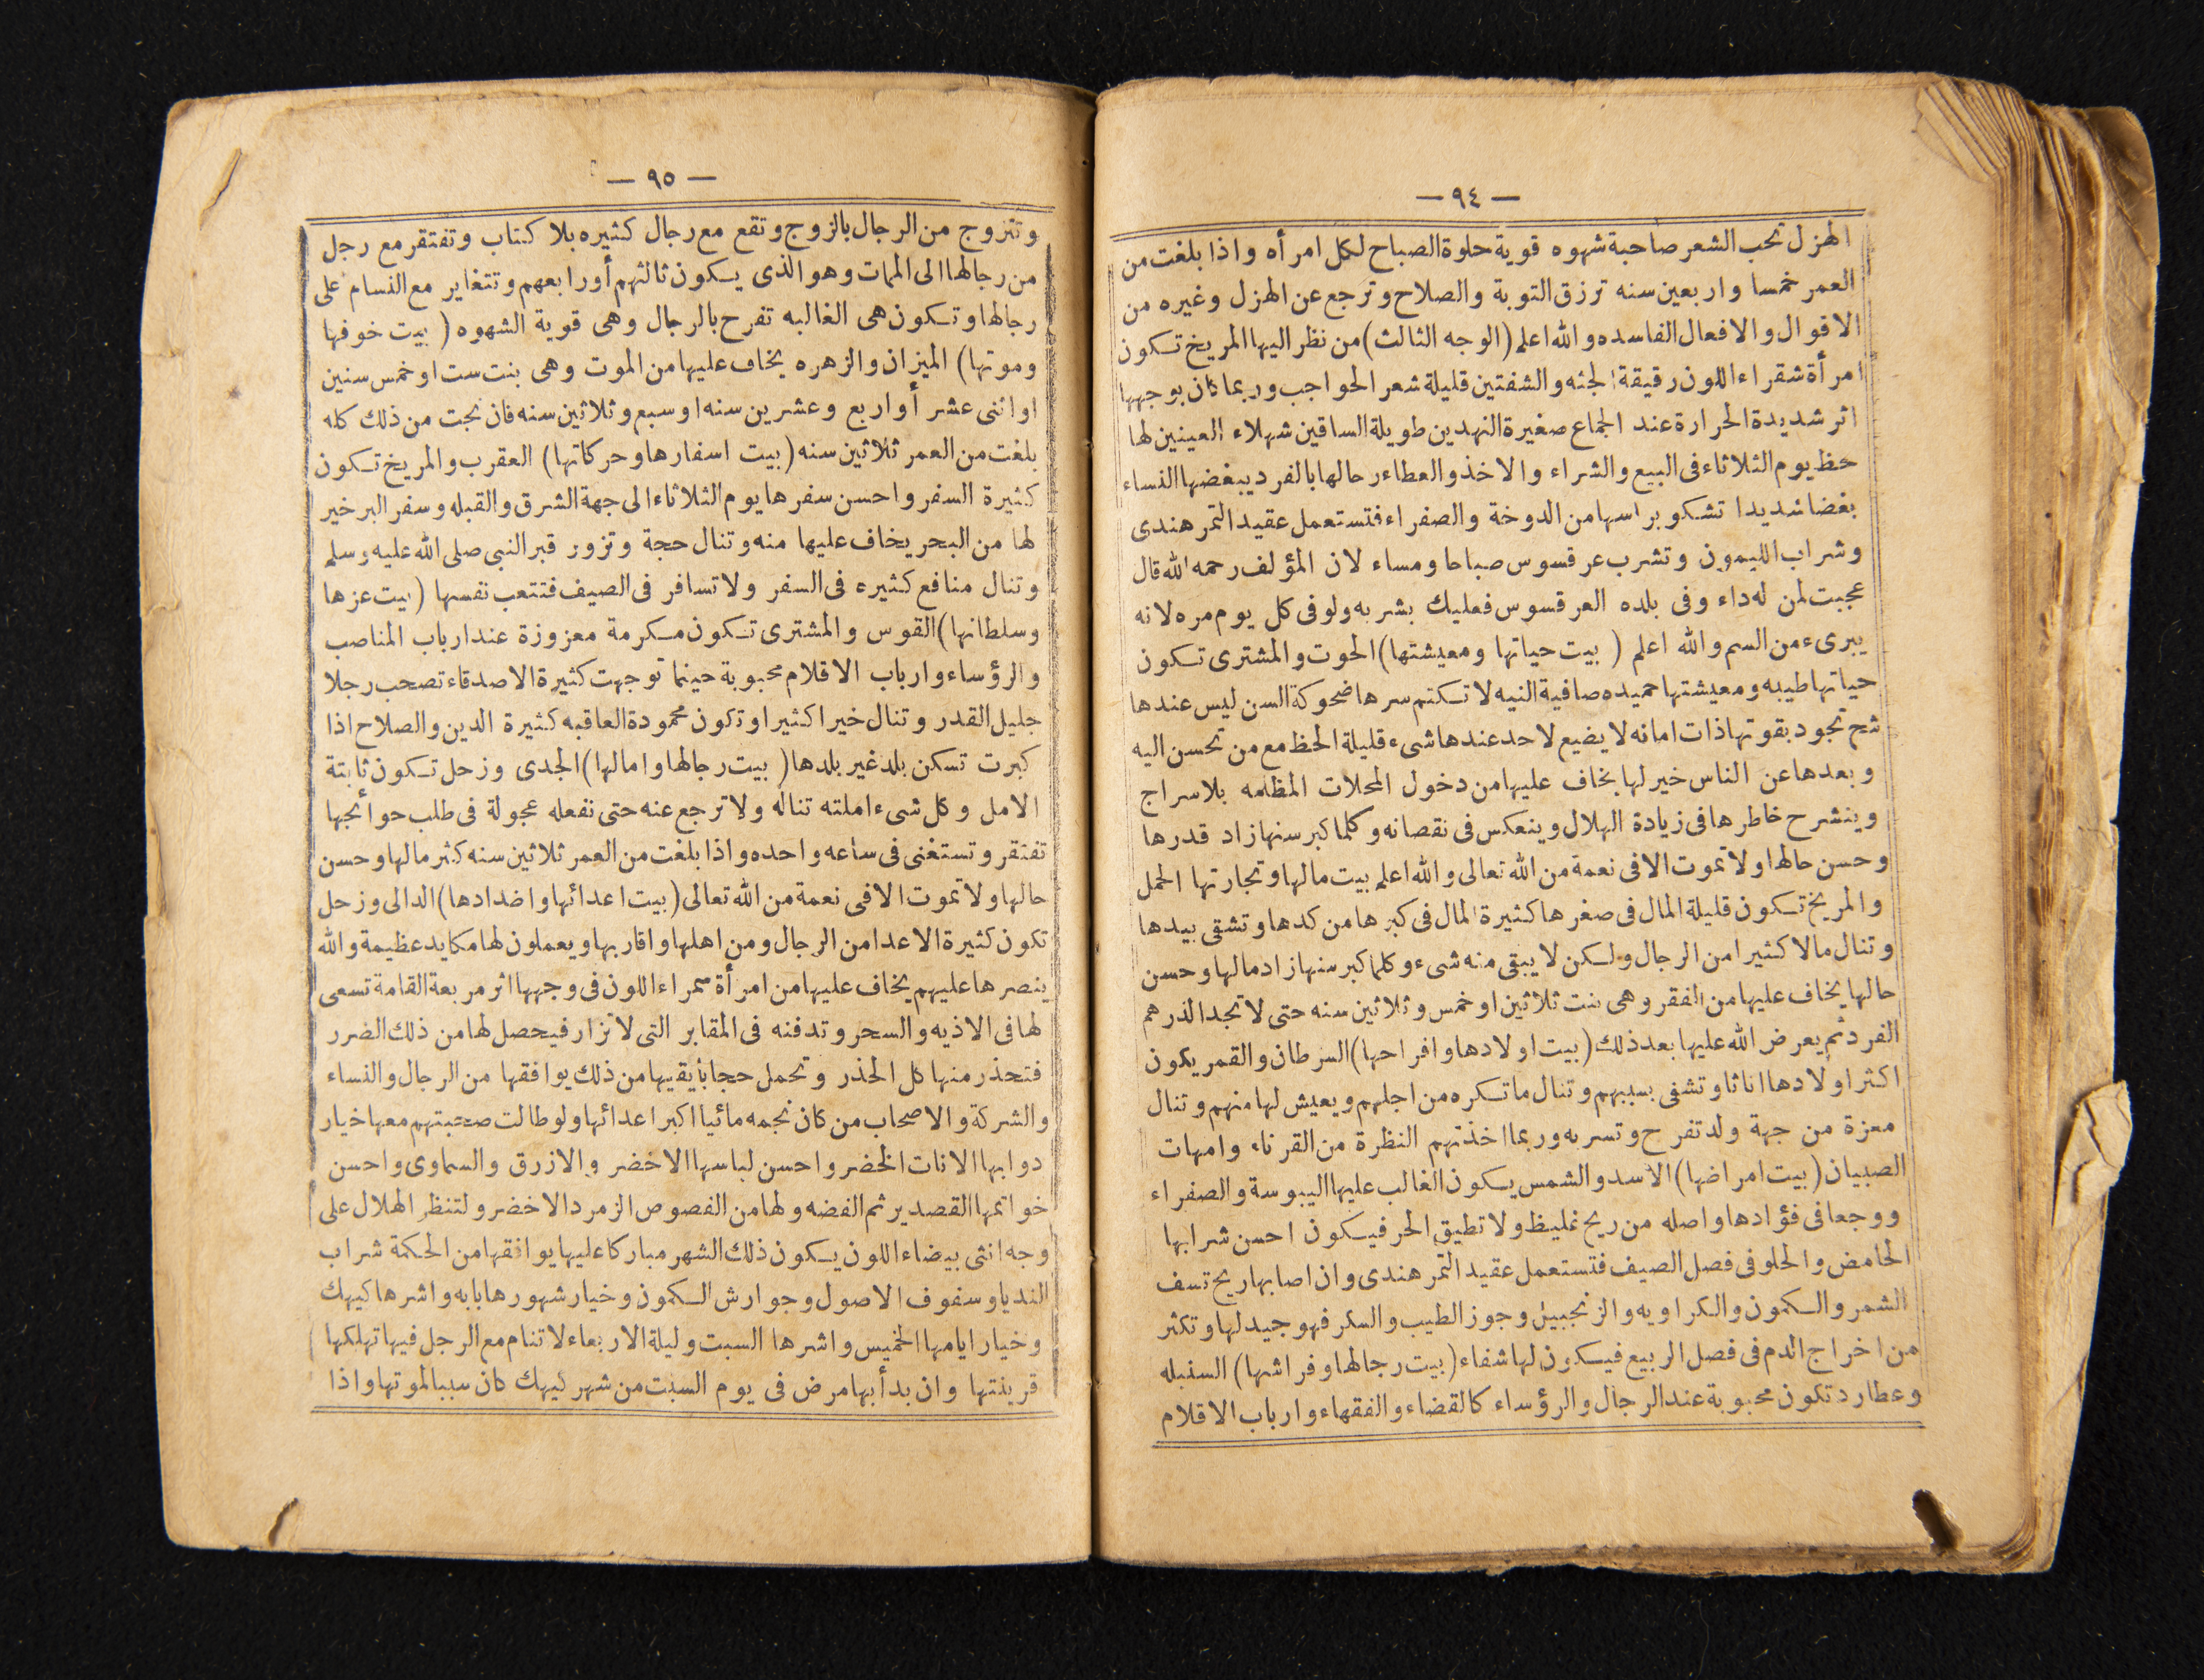 — ٩٤ —
الهزل تحب الشعر صاحبة شهوه قوية حلوة الصباح لكل امرأه واذا بلغت من
العمر خمسا واربعين سنه ترزق التوبة والصلاح وترجع عن الهزل وغيره من
الاقوال والافعال الفاسده والله اعلم (الوجه الثالث) من نظر اليها المريخ تكون
امرأة شقراء اللون رقيقة الجثه والشفتين قليلة شعر الحواجب وربما كان بوجهها
اثر شديدة الحرارة عند الجماع صغيرة النهدين طويلة الساقين شهلاء العينين لها
حظ يوم الثلاثاء فى البيع والشراء والاخذ والعطاء رحالها بالفرد يبغضها النساء
بغضا شديدا تشكو براسها من الدوخة والصفراء فتستعمل عقيد التمر هندى
وشراب الليمون وتشرب عرقسوس صباحا ومساء لان المؤلف رحمه الله قال
عجبت لمن له داء وفى بلده العرقسوس فعليك بشربه ولو فى كل يوم مره لانه
يبرىء من السم والله اعلم ( بيت حياتها ومعيشتها) الحوت والمشترى تكون
حياتها طيبه ومعيشتها حميده صافية النيه لا تكتم سرها ضحوكة السن ليس عندها
شح تجود بقوتها ذات امانه لا يضيع لاحد عندها شىء قليلة الحظ مع من تحسن اليه
وبعدها عن الناس خير لها يخاف عليها من دخول المحلات المظلمه بلا سراج
وينشرح خاطرها فى زيادة الهلال وينعكس فى نقصانه وكلما كبر سنها زاد قدرها
وحسن حالها ولا تموت الا فى نعمة من الله تعالى والله اعلم بيت مالها وتجارتها الحمل
والمريخ تكون قليلة المال فى صغرها كثيرة المال فى كبرها من كدها وتشقى بيدها
وتنال مالا كثيرا من الرجال ولكن لا يبقى منه شىء وكلما كبر سنها زاد مالها وحسن
حالها يخاف عليها من الفقر وهى بنت ثلاثين او خمس وثلاثين سنه حتى لا تجد الدرهم
الفرد ثم يعرض الله عليها بعد ذلك (بيت اولادها وافراحها) السرطان والقمر يكون
اكثر اولادها اناثا وتشفى بسببهم وتنال ما تكره من اجلهم ويعيش لها منهم وتنال
معزة من جهة ولد تفرح وتسر به وربما اخذتهم النظرة من القرناء وامهات
الصبيان (بيت امراضها) الاسد والشمس يكون الغالب عليها اليبوسة والصفراء
ووجعا فى فؤادها واصله من ريح غليظ ولا تطيق الحر فيكون احسن شرابها
الحامض والحلو فى فصل الصيف فتستعمل عقيد التمر هندى وان اصابها ريح تسف
الشمر والكمون والكراويه والزنجبيل وجوز الطيب والسكر فهو جيد لها وتكثر
من اخراج الدم فى فصل الربيع فيكون لها شفاء (بيت رجالها وفراشها) السنبله
وعطارد تكون محبوبة عند الرجال والرؤساء كالقضاء والفقهاء وارباب الاقلام
— ٩٥ —
وتتزوج من الرجال بالزوج وتقع مع رجال كثيره بلا كتاب وتفتقر مع رجل
من رجالها الى الممات وهو الذى يكون ثالثهم أو رابعهم وتتغاير مع النسام على
رجالها وتكون هى الغالبه تفرح بالرجال وهى قوية الشهوه ( بيت خوفها
وموتها) الميزان والزهره يخاف عليها من الموت وهى بنت ست او خمس سنين
او اثنى عشر أو اربع وعشرين سنه او سبع وثلاثين سنه فان نجت من ذلك كله
بلغت من العمر ثلاثين سنه (بيت اسفارها وحركاتها) العقرب والمريخ تكون
كثيرة السفر واحسن سفرها يوم الثلاثاء الى جهة الشرق والقبله وسفر البر خير
لها من البحر يخاف عليها منه وتنال حجة وتزور قبر النبى صلى الله عليه وسلم
وتنال منافع كثيره فى السفر ولا تسافر فى الصيف فتتعب نفسها ( بيت عزها
وسلطانها) القوس والمشترى تكون مكرمة معزوزة عند ارباب المناصب
والرؤساء وارباب الاقلام محبوبة حينما توجهت كثيرة الاصدقاء تصحب رجلا
جليل القدر وتنال خيرا كثيرا وتكون محمودة العاقبه كثيرة الدين والصلاح اذا
كبرت تسكن بلد غير بلدها ( بيت رجالها وامالها) الجدى وزحل تكون ثابتة
الامل وكل شىء املته تناله ولا ترجع عنه حتى تفعله عجولة فى طلب حوائجها
تفتقر وتستغنى فى ساعه واحده واذا بلغت من العمر ثلاثين سنه كثر مالها وحسن
حالها ولا تموت الا فى نعمة من الله تعالى (بيت اعدائها واضدادها) الدالى وزحل
تكون كثيرة الاعدا من الرجال ومن اهلها واقاربها ويعملون لها مكايد عظيمة والله
ينصرها عليهم يخاف عليها من امرأة سمراء اللون فى وجهها اثر مربعة القامة تسعى
لها فى الاذيه والسحر وتدفنه فى المقابر التى لا تزار فيحصل لها من ذلك الضرر
فتحذر منها كل الحذر وتحمل حجابا يقيها من ذلك يوافقها من الرجال والنساء
والشركة والاصحاب من كان نجمه مائيا اكبر اعدائها ولو طالت صحبتهم معها خيار
دوابها الانات الخضر واحسن لباسها الاخضر والازرق والسماوى واحسن
خواتمها القصدير ثم الفضه ولها من الفصوص الزمرد الاخضر ولتنظر الهلال على
وجه انثى بيضاء اللون يكون ذلك الشهر مباركا عليها يوافقها من الحكمة شراب
النديا وسفوف الاصول وجوارش الكمون وخيار شهورها بابه واشرها كيهك
وخيار ايامها الخميس واشرها السبت وليلة الاربعاء لا تنام مع الرجل فيها تهلكها
قرينتها وان بدأ بها مرض فى يوم السبت من شهر كيهك كان سببا لموتها واذا